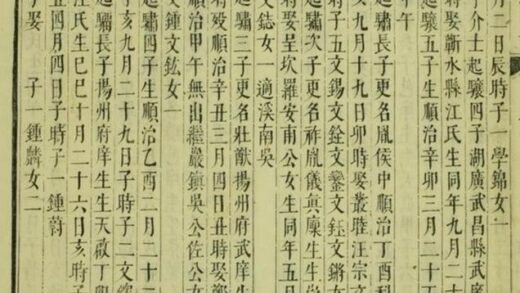 月二日辰時子一學錦女一
子介士起驤四子湖廣武昌縣武
時娶蘄水縣江氏生同年九月二
起驤五子生順治辛卯三月二十
午
起驌長子更名胤侯中順治丁酉科
九月十九日卯時娶叢睦汪宗文
子五文錫文銓文鑾文鈺文鏘女
時娶呈坎羅安南公女生同年五月
起驌次子更名祚胤儀真廩生生
文鋕女一適溪南吳
起驌三子更名壯猷揚州府武庠生
時歿順治辛丑三月四日丑時娶鄭
順治甲午無出繼嚴鎮吳公佐公女
文鍾文鈜女一
起驌四子生順治乙酉二月二十
亥九月二十九日子時子二文欽
起驌長子揚州府庠生生天啟丁卯
江氏生己巳十月二十六日亥時
丑四月四日子時子一鍾蔚
子娶 子一鍾麟女二